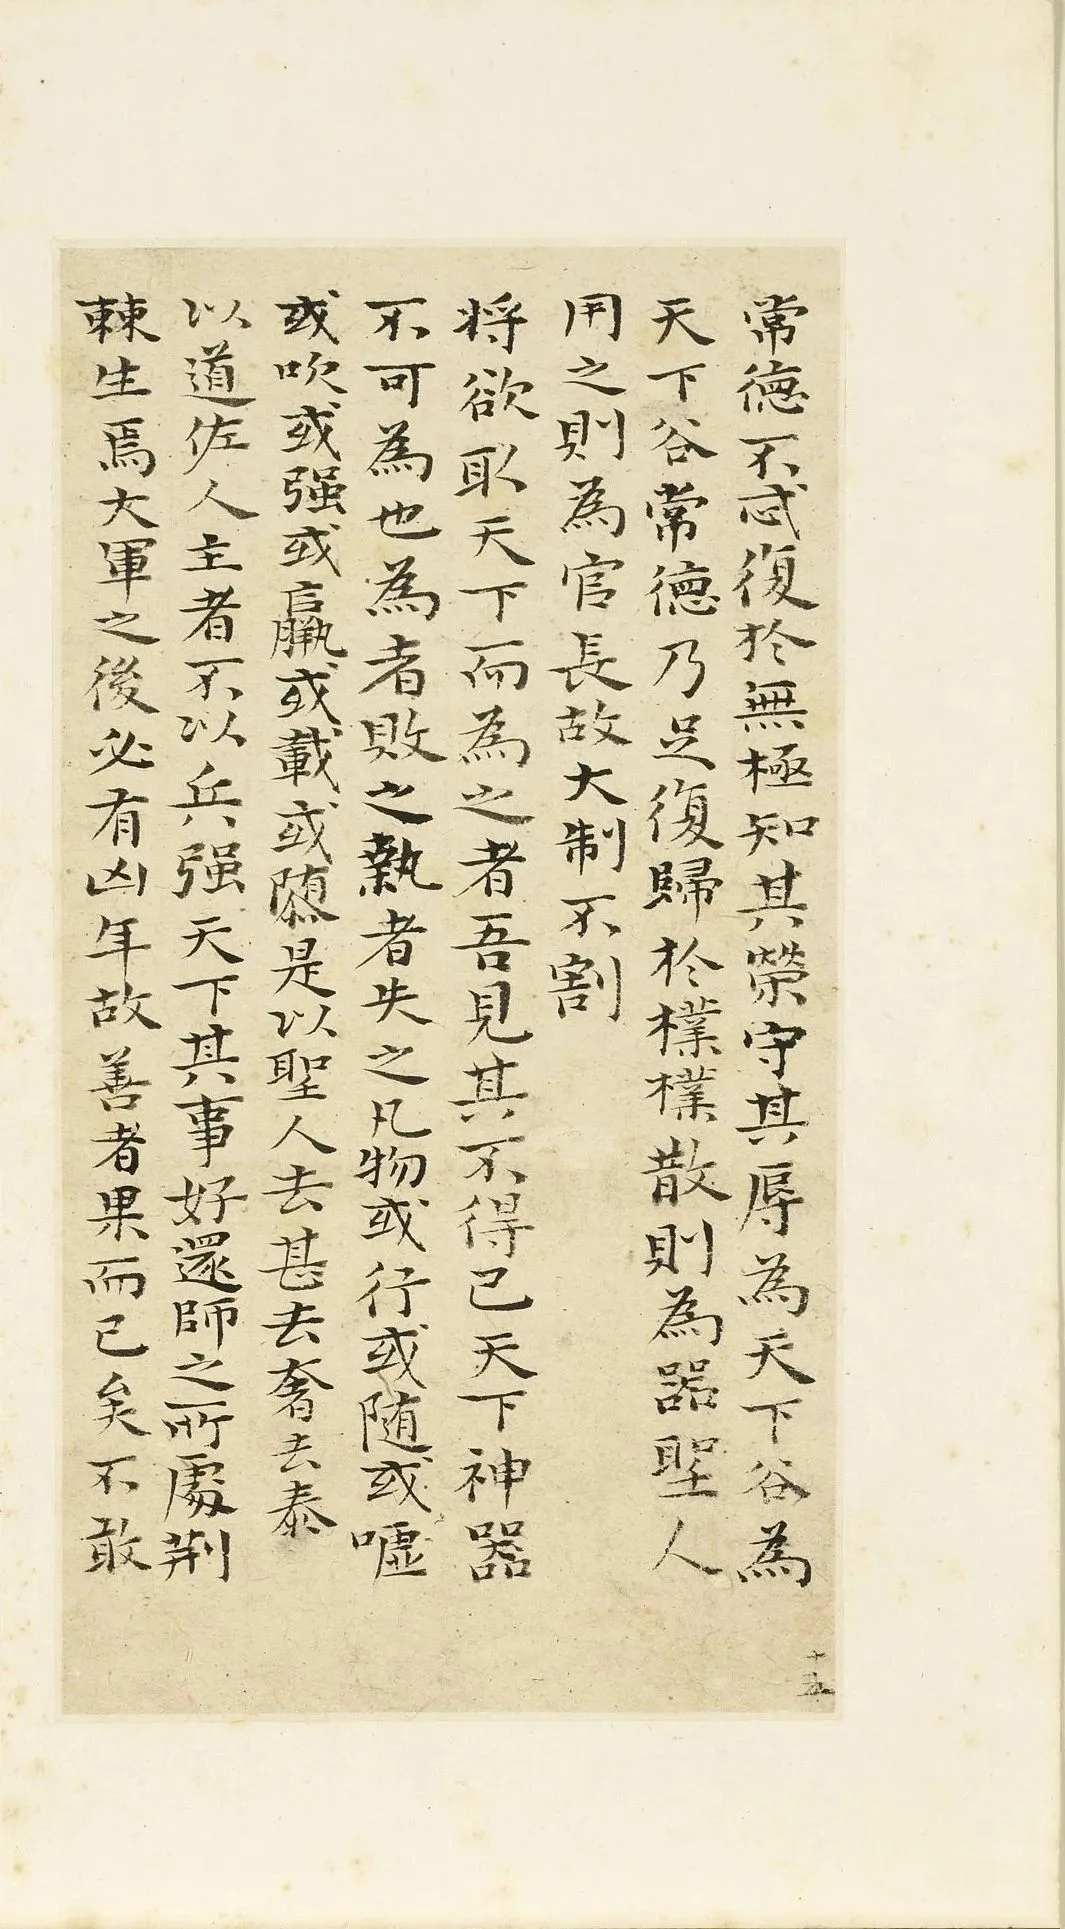 常德不忒復於無極知其榮守其辱為天下谷為
天下谷常德乃足復歸於樸樸散則為器聖人
用之則為官長故大制不割
将欲取天下而為之者吾見其不得已天下神器
不可為也為者敗之執者失之凡物或行或随或嘘
或吹或强或羸或載或隳是以聖人去甚去奢去泰
以道佐人主者不以兵强天下其事好還師之所處荆
棘生焉大軍之後必有凶年故善者果而已矣不敢
十五